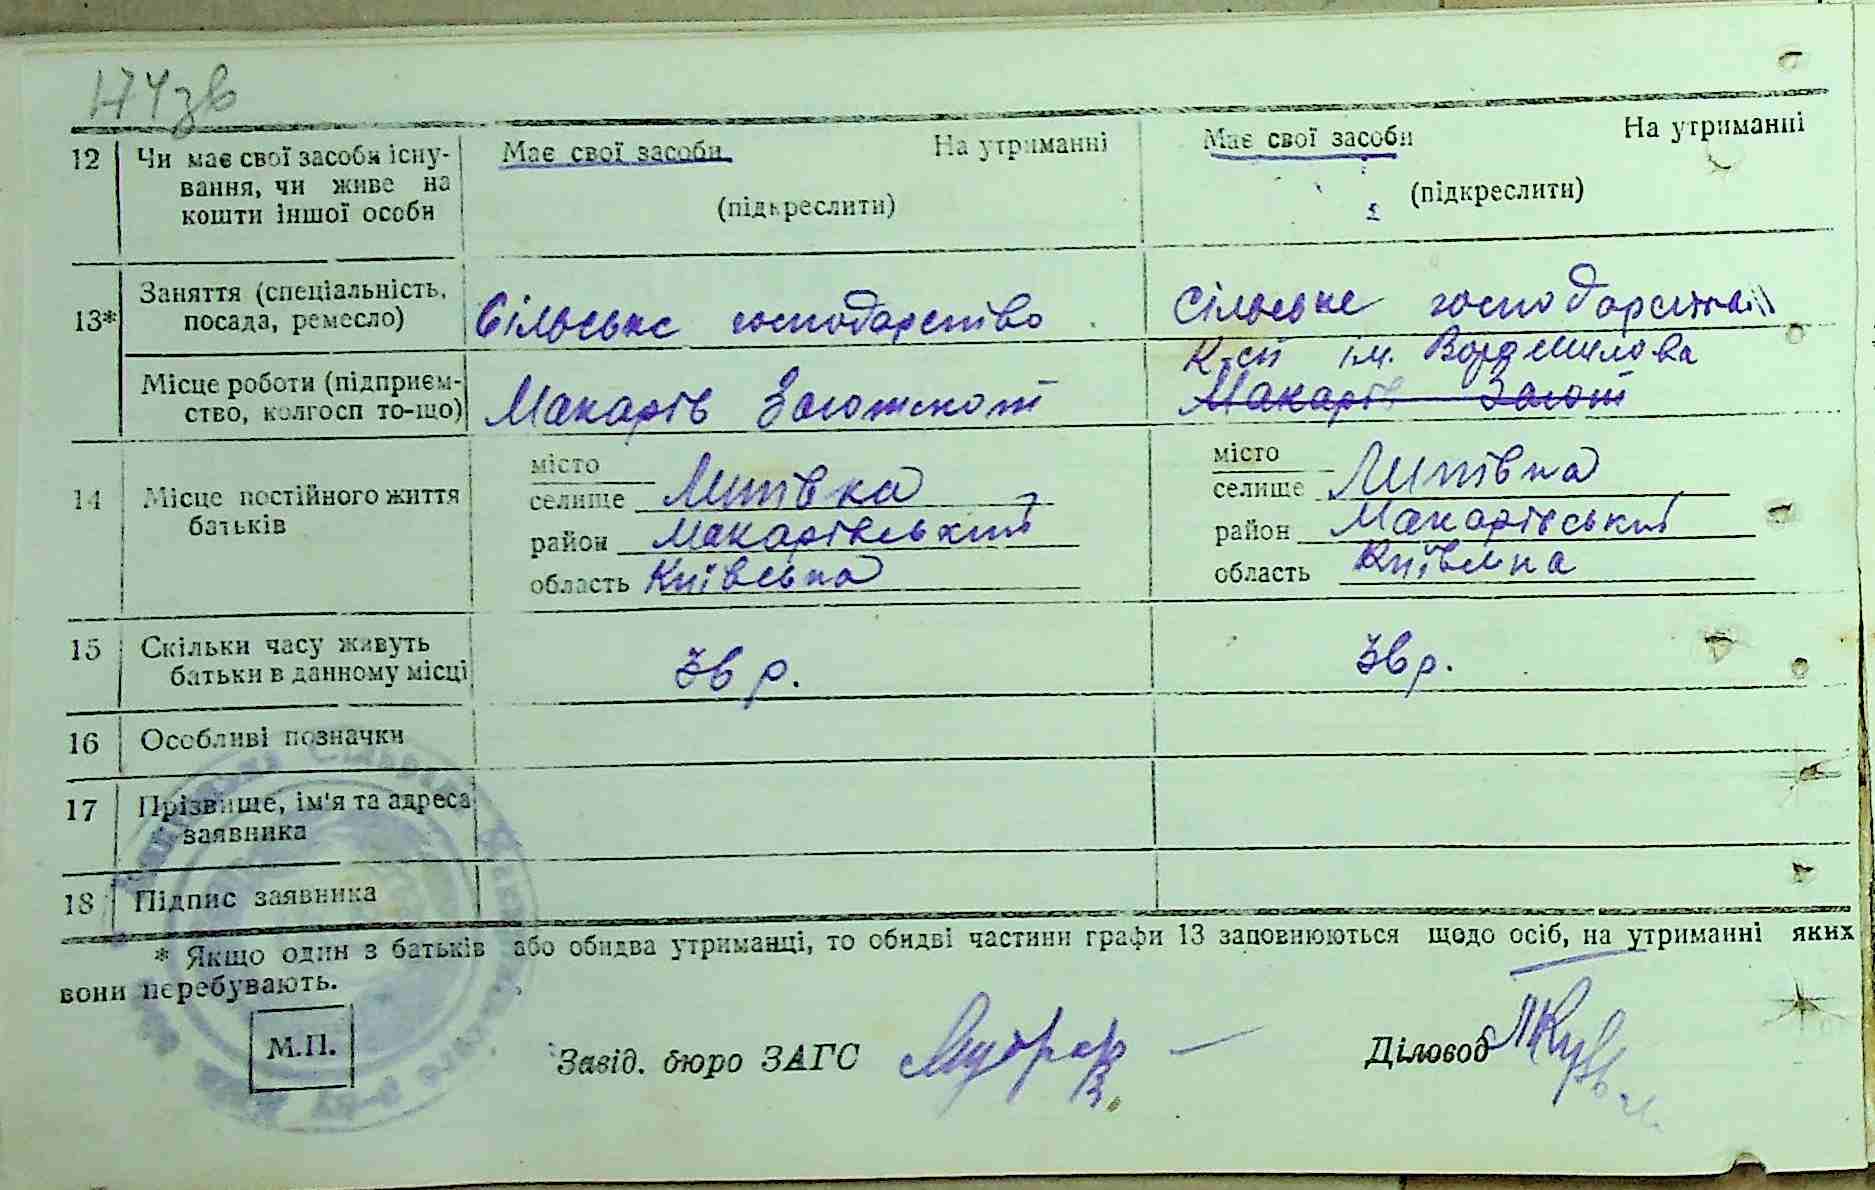 174зв
12 Чи має свої засоби існу- Має свої засоби На утриманні Має свої засоби На утриманні
вання, чи живе на
кошти іншої особи (підкреслити) (підкреслити)
13* Заняття (спеціальність, посада, ремесло) Сільське господарство Сільське господарство
Ксп ім. Ворошилова
Місце роботи (підприєм- Макарів Заготскот Макарів Загот
ство, колгосп то-що)
14 Місце постійного життя батьків
місто місто
селище Липівка селище Липівка
район Макарівський район Макарівський
область Київська область Київська
15 Скільки часу живуть
батьки в данному місці 36 р. 36 р.
16 Особливі позначки
17 Прізвище, ім'я та адреса
заявника
18 Підпис заявника
* Якщо один з батьків або обидва утриманці, то обидві частини графи 13 заповнюються щодо осіб, на утриманні яких
вони перебувають.
М.П. Завід. бюро ЗАГС Діловод